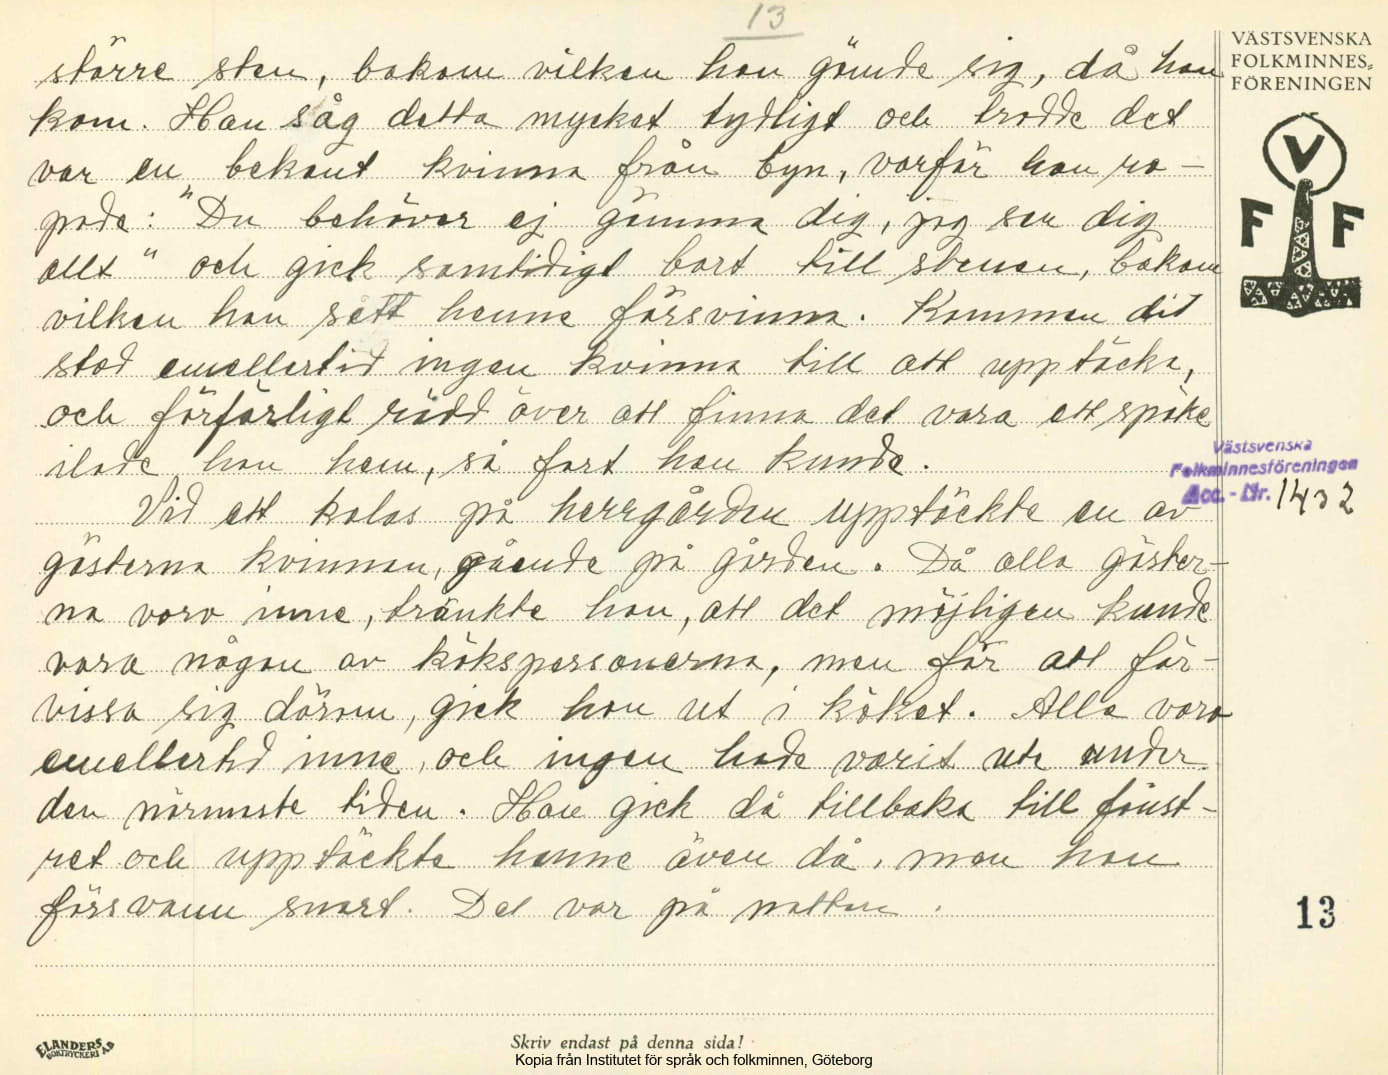 13
VÄSTSVENSKA
FOLKMINNES-
FÖRENINGEN
V
F F
större sten, bakom vilken hon gömde sig, då han
kom. Han såg detta mycket tydligt och trodde det
var en bekant kvinna från byn, varför han ro-
pade: "Du behöver ej gömma dig, jag ser dig
allt" och gick samtidigt bort till stenen, bakom
vilken han sett henne försvinna. Kommen dit
stod emellertid ingen kvinna till att upptäcka,
och förfärligt rädd över att finna det vara ett spöke
ilade han hem, så fort han kunde.
Västsvenska
Folkminnesföreningen
Acc. - Nr. 1432
Vid ett kalas på herrgården upptäckte en av
gästerna kvinnan, gående på gården. Då alla gäster-
na voro inne, tränkte han, att det möjligen kunde
vara någon av kökspersonerna, men för att för-
vissa sig därom, gick han ut i köket. Alla voro
emellertid inne, och ingen hade varit ute under
den närmste tiden. Han gick då tillbaka till fönst-
ret och upptäckte henne även då, men hon
försvann snart. Det var på natten.
13
ELANDERS
BOKTRYCKERI AB
Skriv endast på denna sida!
Kopia från Institutet för språk och folkminnen, Göteborg